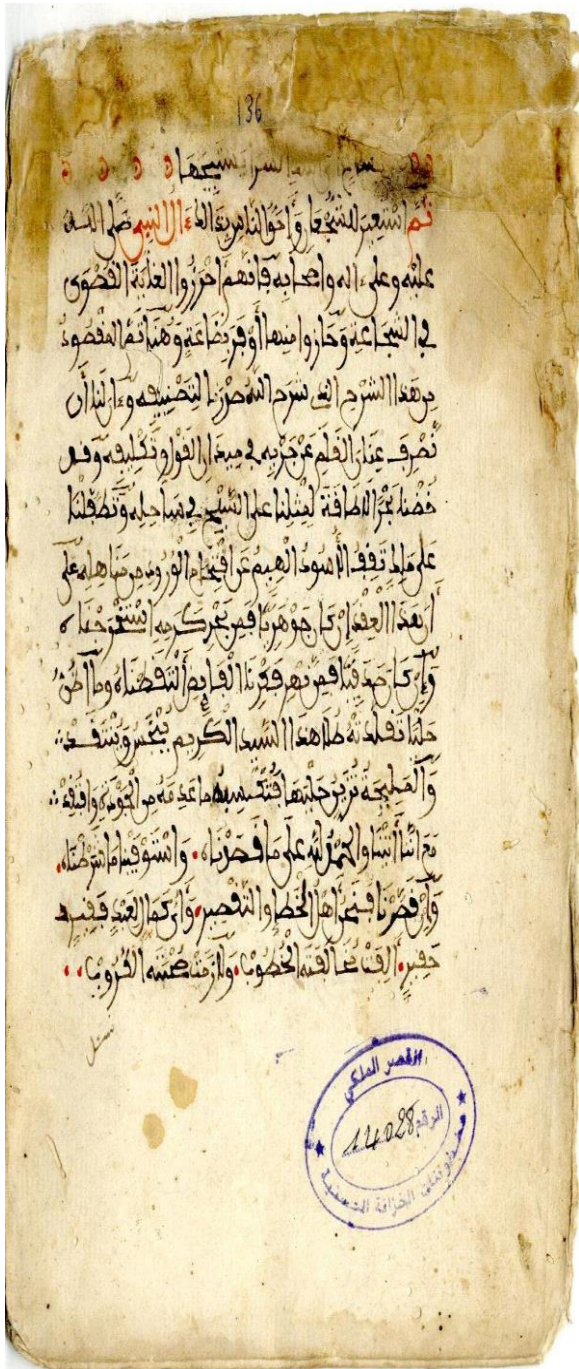 136
ثم أشجع الشجعان وأحق الناس بهذا آل النبي صلى الله
عليه وعلى ءاله وأصحابه فإنهم أحرزوا الغاية القصوى
في الشجاعة وحازوا منها أوفر بضاعة وهنا تم المقصود
من هذا الشرح الذي شرح الله صدرنا لتصنيفه وءان لنا أن
نصرف عنان القلم عن جريه في ميدان القول وتكليفه وقد
خضنا بحرا لا طاقة لمثلنا على السبح في ساحله وتطفلنا
على ما تقف الأسود الهيم عن اقتحام الورود من مناهله على
أن هذا العقد إن كان جوهريا فمن بحر كرمه استخرجناه
وإن كان صدفيا فمن نهر فكرنا الفايض التقطناه وما أظن
حليا تقلدته طلا هذا السيد الكريم يبخس وينتقد
والمليحة تزين حليتها فتكسبه ما عدمه من الجودة وافتقد
مع أننا أتينا والحمد لله على ما قصدناه. واستوفينا ما شرطناه.
وإن قصرنا فنحن أهل الخطإ والتقصير. وأنى كما العبد فقير
حقير. ألفت تآلفه الخطوب. ولازمت ضمته الكروب
القصر الملكي
الرقم 14028
محفوظات الخزانة الحسنية